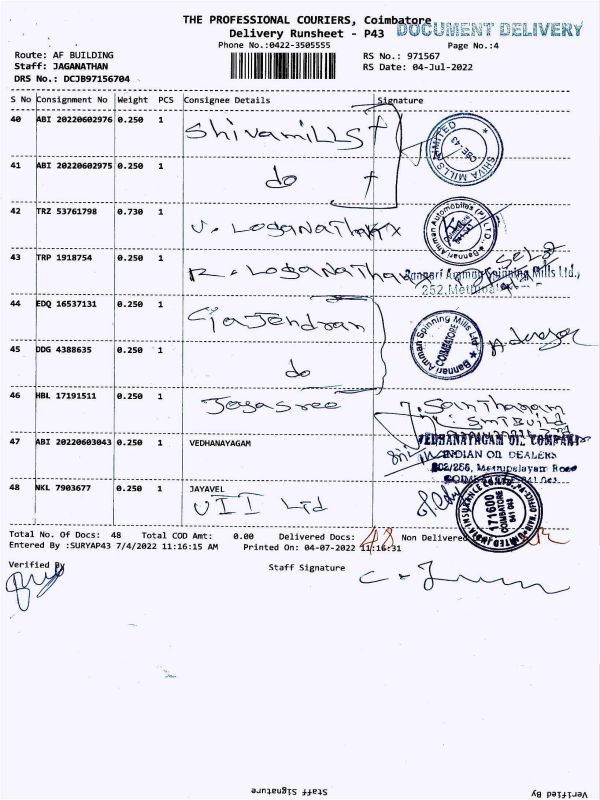 THE PROFESSIONAL COURIERS, Coimbatore
DOCUMENT DELIVERY
Delivery Runsheet - P43
Phone No.:0422-3505555
Page No.:4
Route: AF BUILDING
RS No.: 971567
Staff: JAGANATHAN
RS Date: 04-Jul-2022
DRS No.: DCJB97156704
S No Consignment No Weight PCS Consignee Details Signature
40 ABI 20220602976 0.250 1 Shivamills
SHIVA MILLS LIMITED
CBE-43
41 ABI 20220602975 0.250 1 do
42 TRZ 53761798 0.730 1 V. Loganathan
Bannari Amman Automobiles (P) LTD.,
43 TRP 1918754 0.250 1 R. Loganathan
Bannari Amman Spinning Mills Ltd.,
44 EDQ 16537131 0.250 1 Gajendran
Bannari Amman Spinning Mills Ltd
COIMBATORE
45 DDG 4388635 0.250 1 do
46 HBL 17191511 0.250 1 Jayasree
47 ABI 20220603043 0.250 1 VEDHANAYAGAM
VEDHANAYAGAM OIL COMPANY
INDIAN OIL DEALERS
48 NKL 7903677 0.250 1 JAYAVEL
UII Ltd
171600
COIMBATORE
641 043
Total No. Of Docs: 48 Total COD Amt: 0.00 Delivered Docs: 48 Non Delivered
Entered By :SURYAP43 7/4/2022 11:16:15 AM Printed On: 04-07-2022 11:16:31
Verified By
Staff Signature
Staff Signature
Verified By